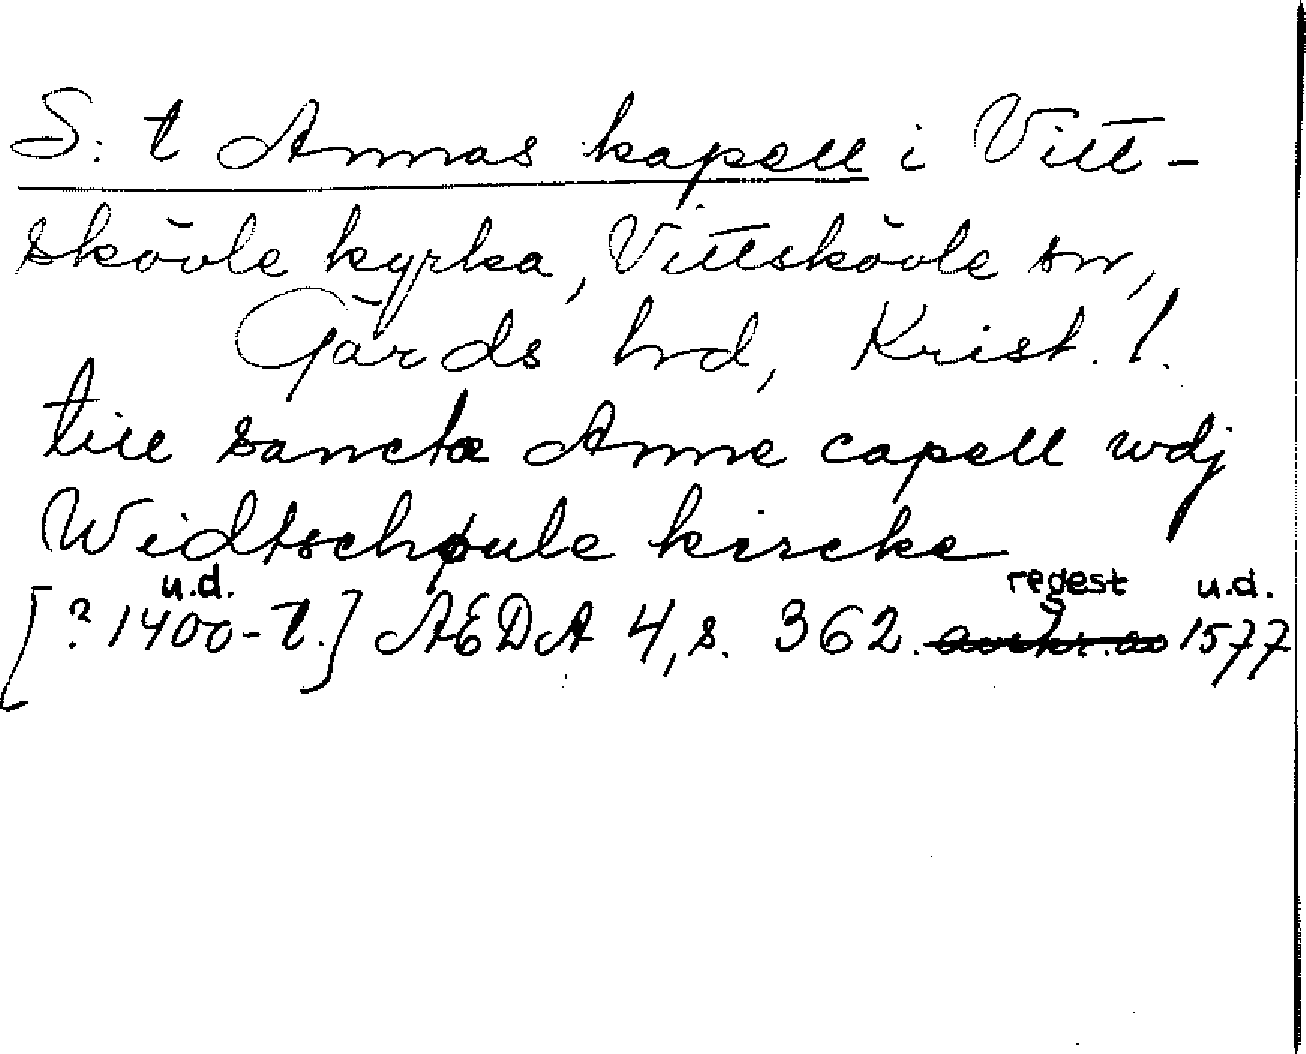 S:t Annas kapell i Vitt-
skövle kyrka, Vittskövle sn,
Gärds hrd, Krist. l.
till sancta Anne capell wdj
Widtschøule kircke
[? 1400-t.] u.d. AEDA 4, s. 362. regest 1577 u.d.